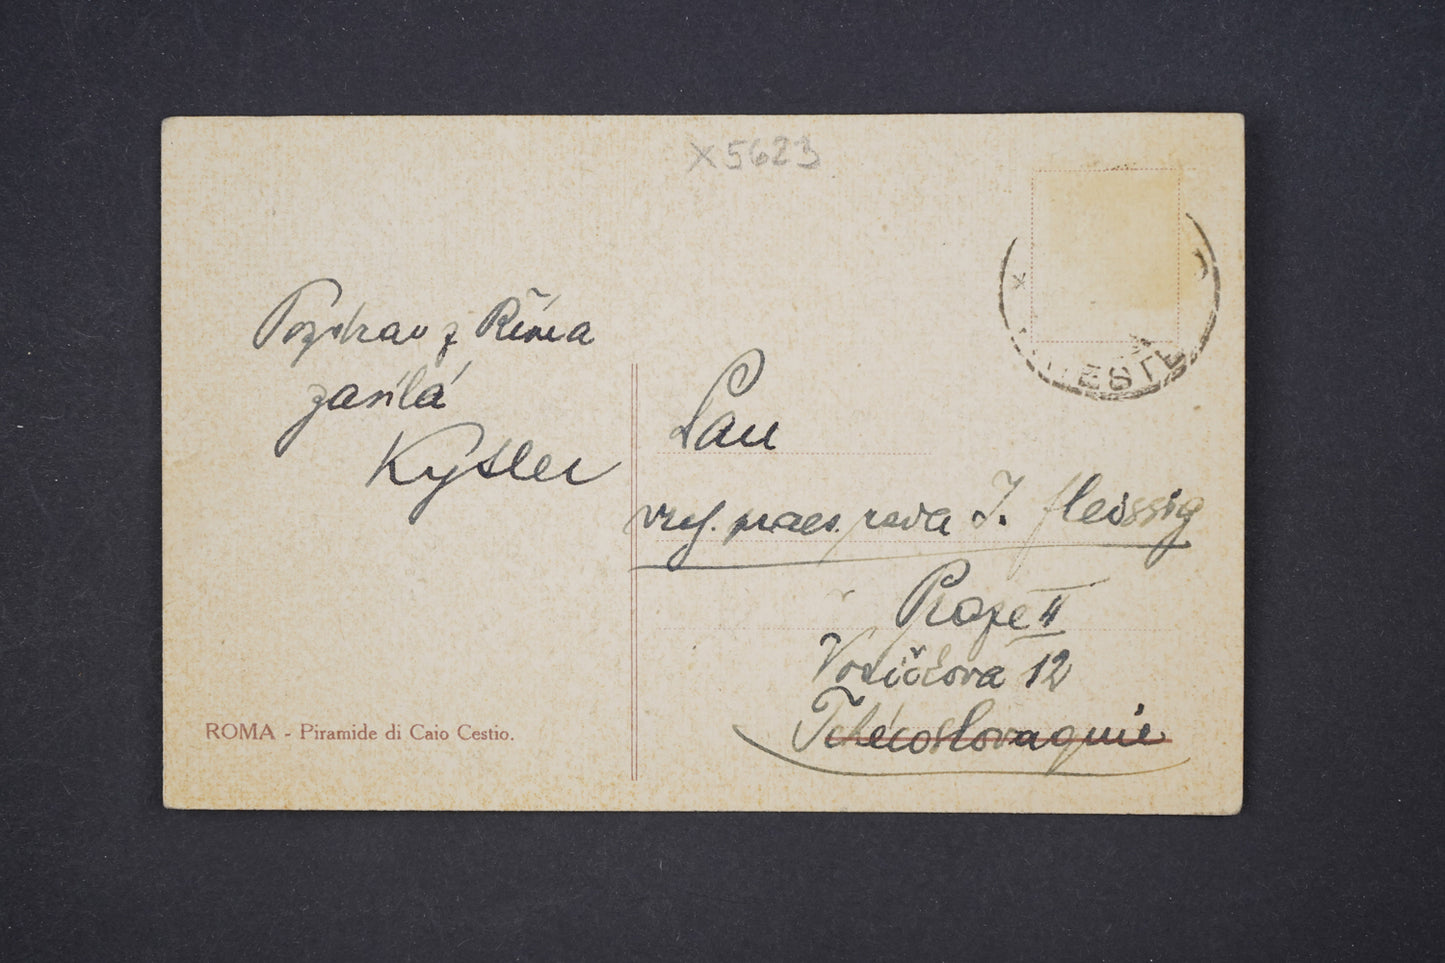 X5623
Pozdrav z Říma
zasílá
Kysler
Pan
J. Fleissig
Prage II
Vodičkova 12
Tchécoslovaquie
ROMA - Piramide di Caio Cestio.